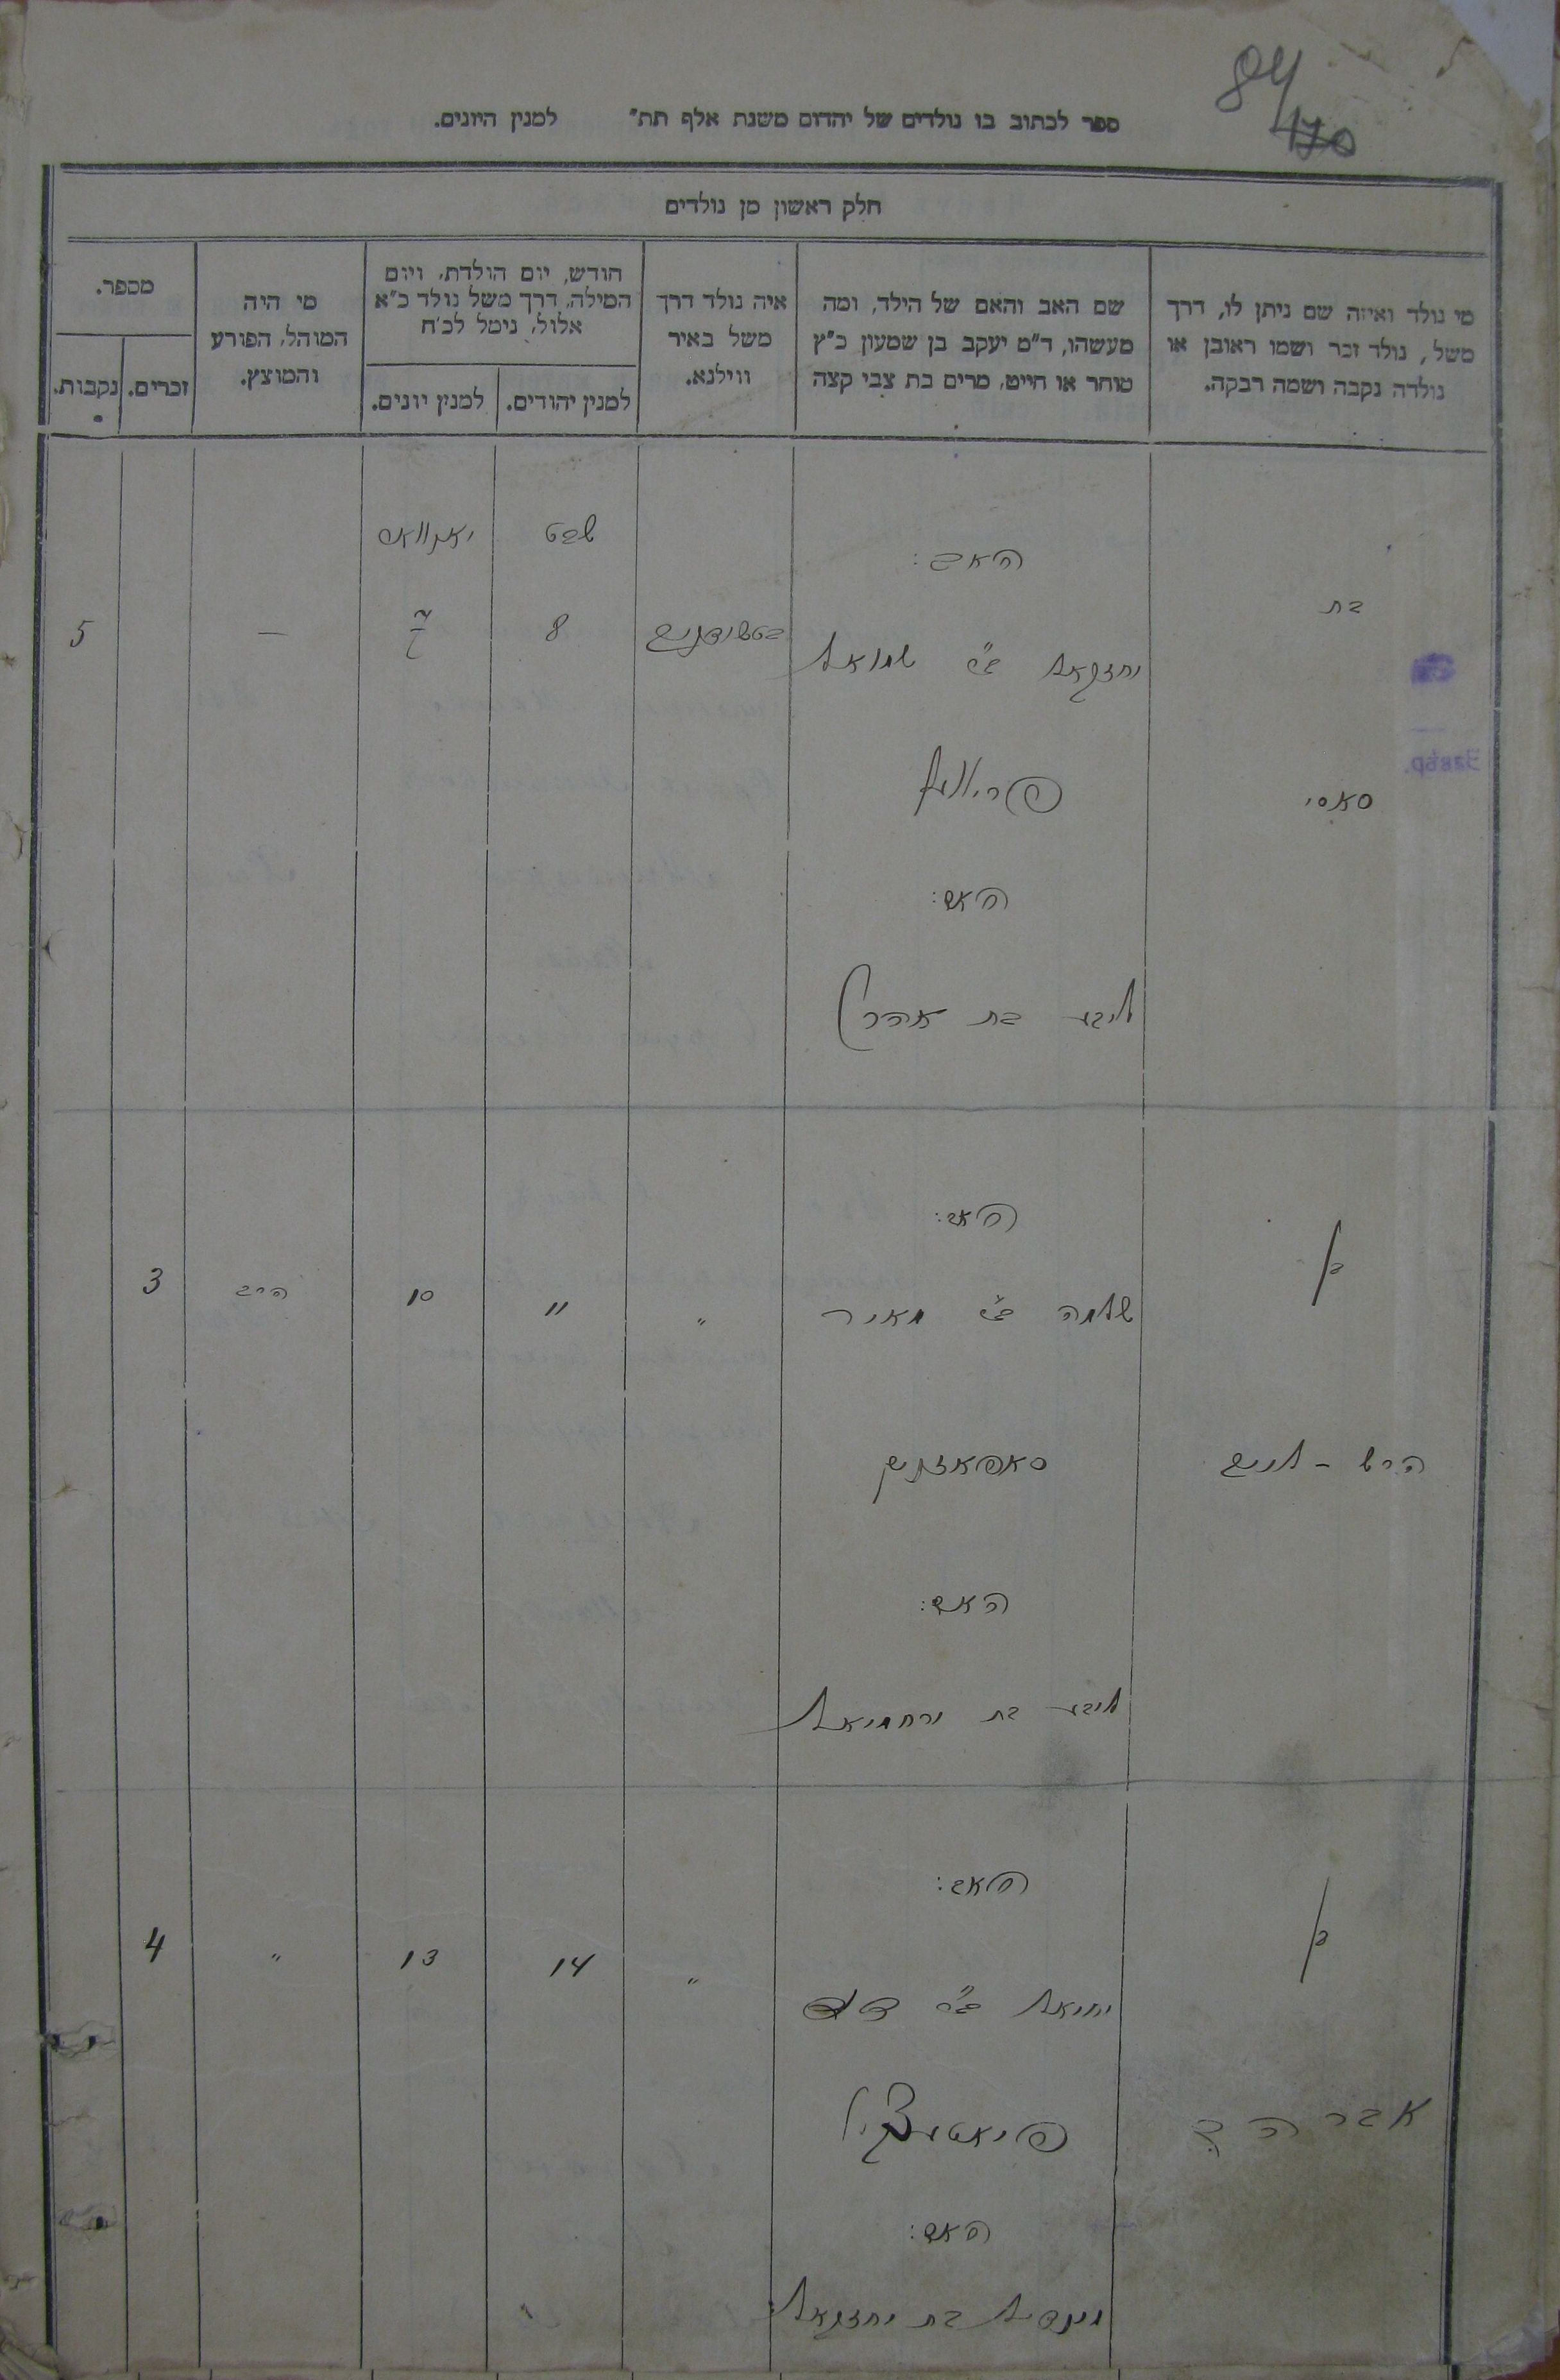 84
170
ספר לכתוב בו נולדים של יהדום משנת אלף תת" למנין היונים.
חלק ראשון מן נולדים
מי נולד ואיזה שם ניתן לו, דרך
משל, נולד זכר ושמו ראובן או
נולדה נקבה ושמה רבקה.
שם האב והאם של הילד, ומה
מעשהו, ד"מ יעקב בן שמעון כ"ץ
סוחר או חייט, מרים בת צבי קצה
איה נולד דרך
משל באיר
ווילנא.
חודש, יום הולדת, ויום
המילה, דרך משל נולד כ"א
אלול, נימל לכ'ח
למנין יהודים.
למנין יונים.
מי היה
המוהל, הפורע
והמוצץ.
מספר.
זכרים.
נקבות.
שבט
בת
האב:
יחזקאל ב"ר שמואל
8
—
5
סאסי
האם:
ליבע בת אהרן
בן
האב:
שלמה ב"ר מאיר
"
11
10
הרב
3
הרש -
האם:
ליבע בת ירחמיאל
בן
האב:
יחיאל ב"ר
"
14
13
"
4
אברהם
האם:
בת יחזקאל